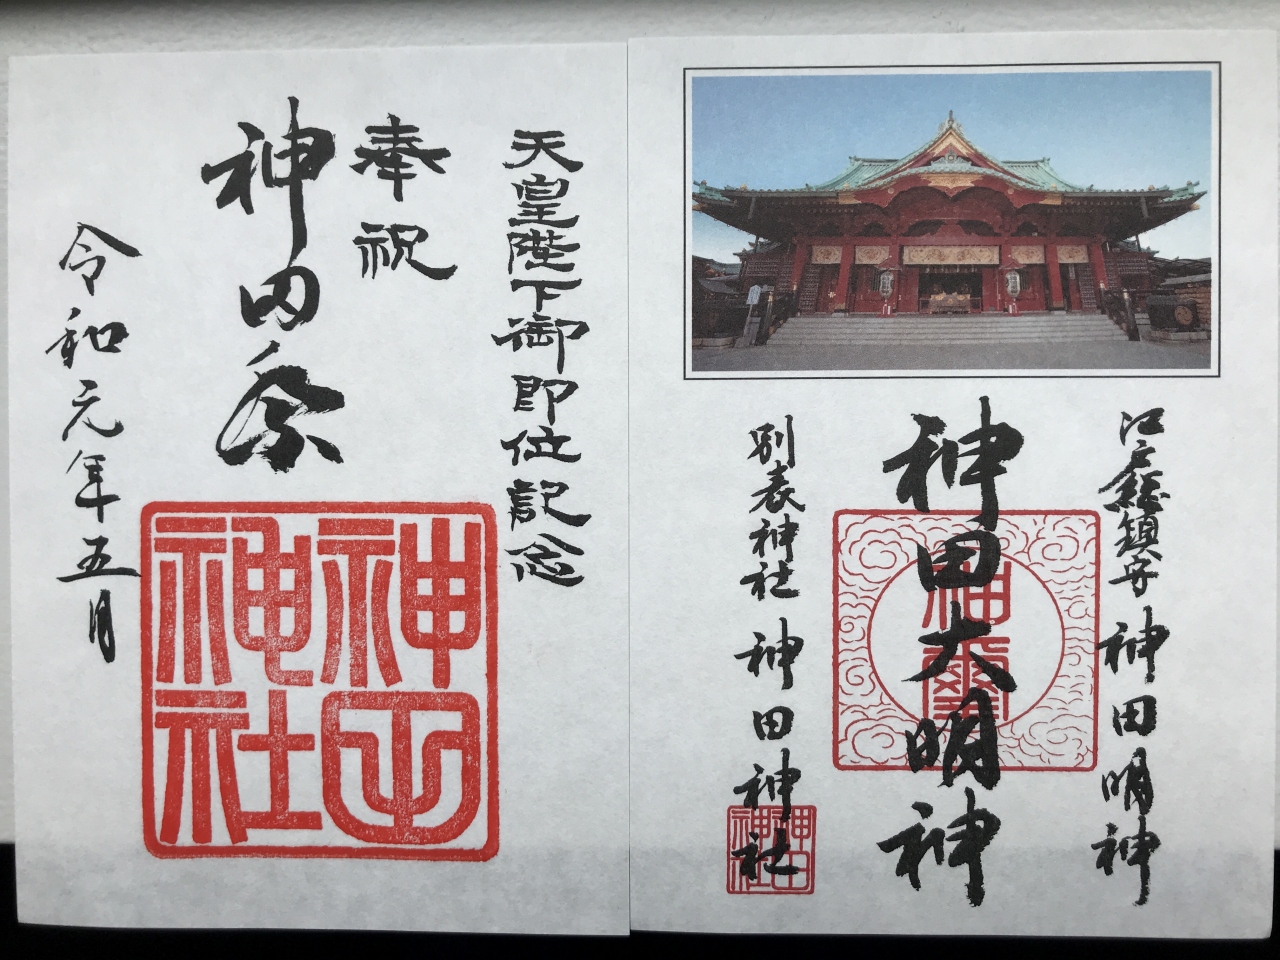 江戸総鎮守 神田明神
神田大明神
神璽
別表神社 神田神社
神田神社
天皇陛下御即位記念
奉祝
神田祭
神田神社
令和元年五月